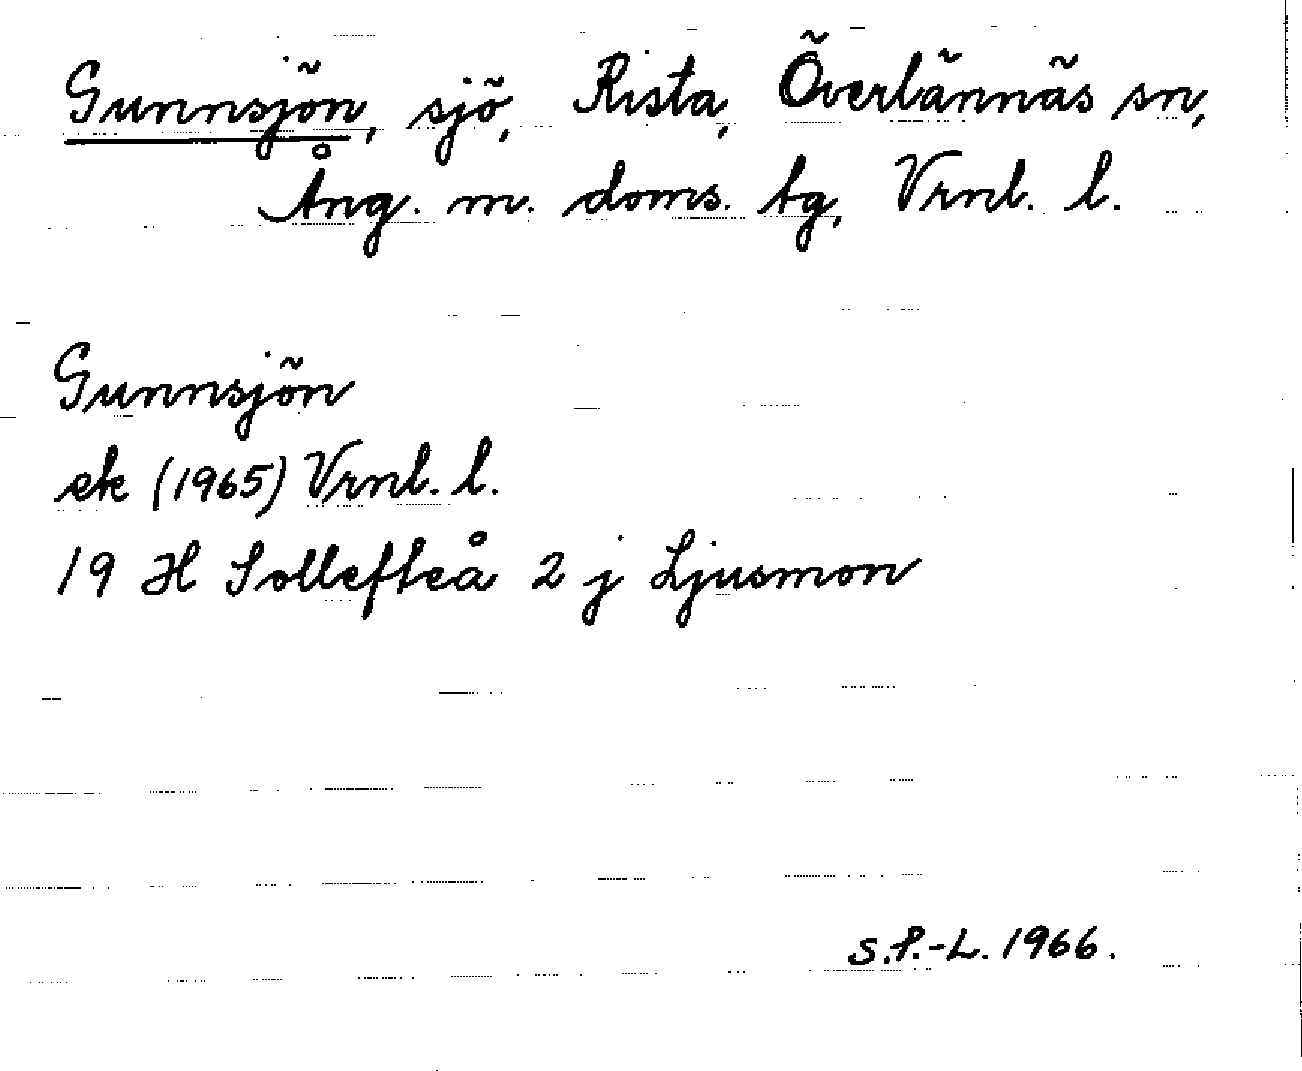 Gunnsjön, sjö, Rista, Överlännäs sn,
Ång. m. doms. tg, Vrnl. l.
Gunnsjön
ek (1965) Vrnl. l.
19 H Sollefteå 2 j Ljusmon
S.P.-L. 1966.